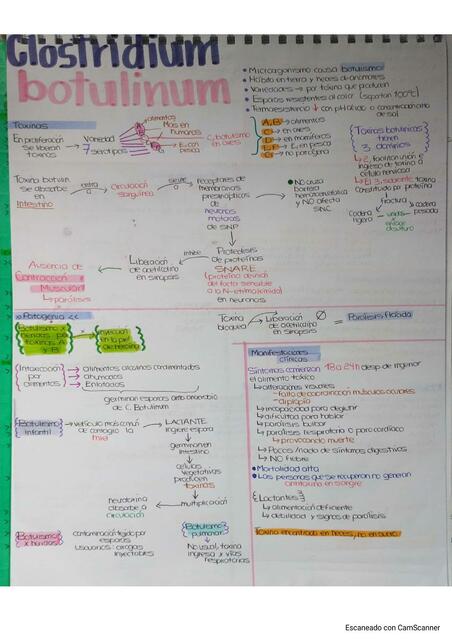 Clostridium
botulinum
• Microorganismo causa botulismo
• Hábito en tierra y heces de animales
• Variedades → por toxina que producen
• Esporas resistentes al calor (soportan 100°C)
• Termoresistencia ↓ con pH ácido o concentración alta
de sal
Toxinas
En proliferación
se liberan
toxinas
Variedad
7
serotipos
alimentos
Más en
humanos
C. botulismo
en aves
E. con
pesca
A, B → alimentos
C → en aves
D → en mamíferos
E, F → E. en pesca
G → no patógeno
Toxinas botulínicas
tienen
3 dominios
↳ 2 facilitan unión e
ingreso de toxina a
célula nerviosa
↳ El 3, sobrante toxina
constituido por proteína
fractura
Cadena
ligera
unidas
enlace
disulfuro
cadena
pesada
Toxina botulin.
se absorbe
en
Intestino
entra
a
Circulación
sanguínea
se une
a
receptores de
membranas
presinápticas
de
neuronas
motoras
de SNP
• NO causa
barrera
hematoencefálica
y NO afecta
SNC
Proteólisis
de proteínas
SNARE
(proteína
del factor sensible
a la N-etilmaleimida)
en neuronas
inhibe
Liberación
de acetilcolina
en sinapsis
Ausencia de
Contracción
Muscular
↳ parálisis
Patogenia <<
Toxina
bloquea
Liberación
de acetilcolina
en sinapsis
Ø
= Parálisis flácida
Botulismo x
heridas por
toxinas A
y B
inyección
en la piel
de heroína
Intoxicación
por
alimentos
→ alimentos alcalinos condimentados
→ ahumados
→ Enlatados
germinan esporas en anaerobio
de C. Botulinum
Botulismo
infantil
→ vehículo más común
de contagio la
miel
LACTANTE
ingiere espora
Germinan en
intestino
células
vegetativas
producen
toxinas
multiplicación
neurotoxina
absorbe a
circulación
Botulismo
x heridas
contaminación tejido por
esporas
usuarios: drogas
inyectables
Botulismo
pulmonar
No usual, toxina
ingresa x vías
respiratorias
Manifestaciones
clínicas
Síntomas comienzan 18 a 24h desp de ingerir
el alimento tóxico
↳ alteraciones visuales
- falta de coordinación músculos oculares
- diplopía
↳ incapacidad para deglutir
↳ dificultad para hablar
↳ parálisis bulbar
↳ parálisis respiratoria o paro cardíaco
↳ provocando muerte
↳ Pocos/nada de síntomas digestivos
↳ NO fiebre
• Mortalidad alta
• Las personas que se recuperan no generan
antitoxina en sangre
Lactantes
↳ alimentación deficiente
↳ debilidad y signos de parálisis
Toxina encontrada en heces, no en suero
Escaneado con CamScanner